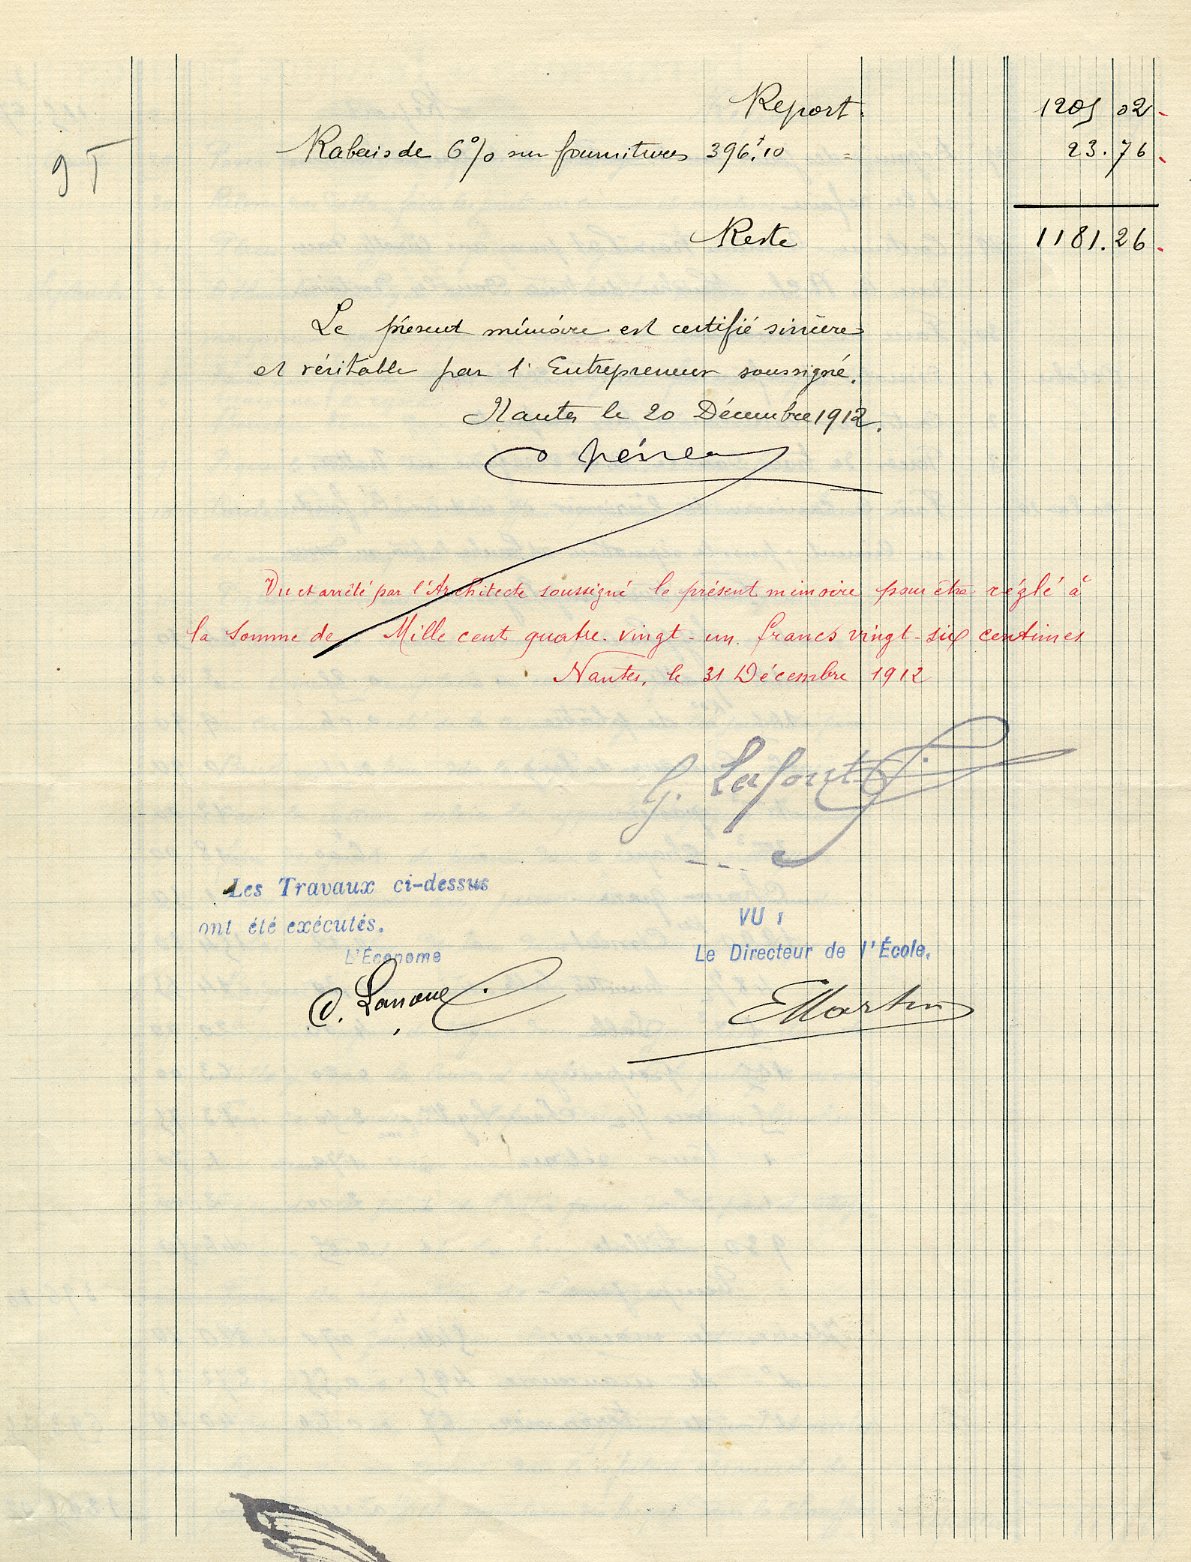 Report. 1205 02
9T
Rabais de 6% sur fournitures 396,f10 = 23.76
Reste 1181.26
Le présent mémoire est certifié sincère
et véritable par l'Entrepreneur soussigné.
Nantes le 20 Décembre 1912.
Vu et arrêté par l'Architecte soussigné le présent mémoire pour être réglé à
la somme de Mille cent quatre-vingt-un francs vingt-six centimes
Nantes, le 31 Décembre 1912
G. Lafont
Les Travaux ci-dessus
ont été exécutés.
L'Économe
VU :
Le Directeur de l'École,
EMartin